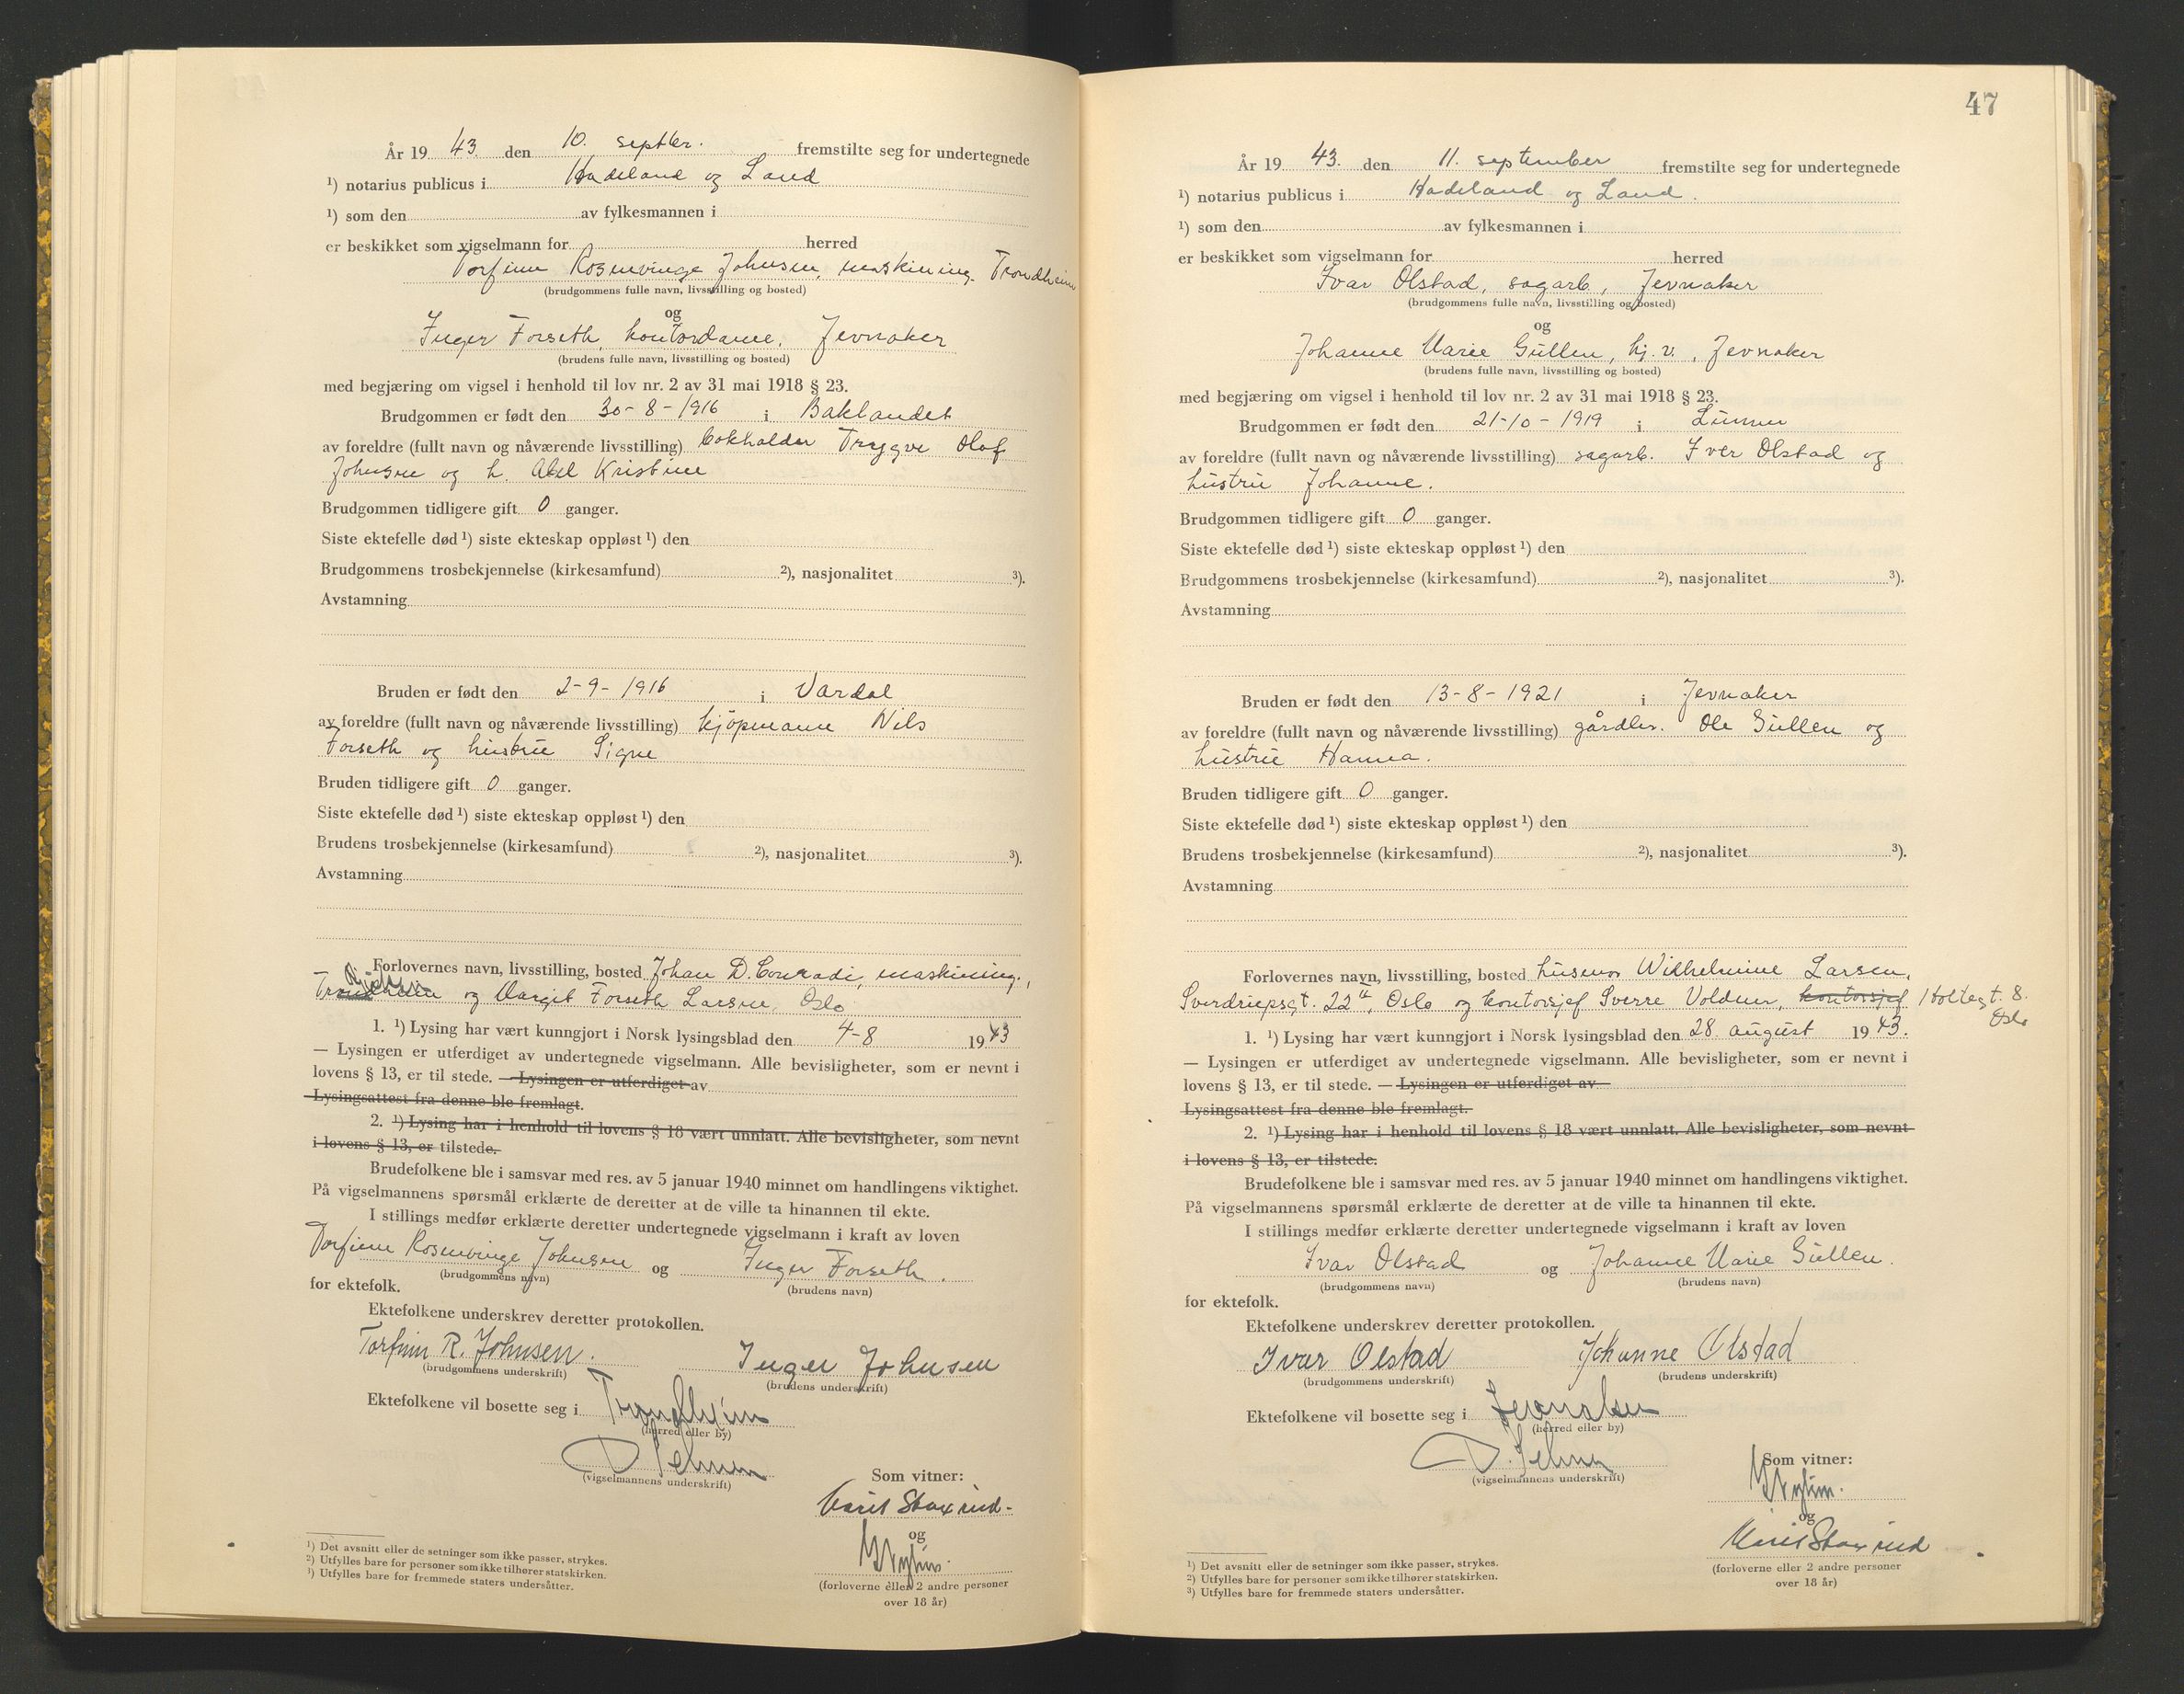 År 19 43. den 10. septbr. fremstilte seg for undertegnede
¹) notarius publicus i Hadeland og Land
¹) som den av fylkesmannen i
er beskikket som vigselmann for herred
Torfinn Rosenvinge Johnsen, maskining. Trondheim
(brudgommens fulle navn, livsstilling og bosted)
og
Inger Forseth, kontordame, Jevnaker
(brudens fulle navn, livsstilling og bosted)
med begjæring om vigsel i henhold til lov nr. 2 av 31 mai 1918 § 23.
Brudgommen er født den 30-8-1916 i Baklandet
av foreldre (fullt navn og nåværende livsstilling) bokholder Tryggve Olaf
Johnsen og h. Abel Kristine
Brudgommen tidligere gift 0 ganger.
Siste ektefelle død ¹) siste ekteskap oppløst ¹) den
Brudgommens trosbekjennelse (kirkesamfund) ²), nasjonalitet ³).
Avstamning
Bruden er født den 2-9-1916 i Vardal
av foreldre (fullt navn og nåværende livsstilling) kjøpmann Nils
Forseth og hustru Signe
Bruden tidligere gift 0 ganger.
Siste ektefelle død ¹) siste ekteskap oppløst ¹) den
Brudens trosbekjennelse (kirkesamfund) ²), nasjonalitet ³).
Avstamning
Forlovernes navn, livsstilling, bosted Johan D. Conradi, maskining.,
Trondheim og Margit Forseth Larsen, Oslo
1. ¹) Lysing har vært kunngjort i Norsk lysingsblad den 4-8 1943
— Lysingen er utferdiget av undertegnede vigselmann. Alle bevisligheter, som er nevnt i
lovens § 13, er til stede. — Lysingen er utferdiget av
Lysingsattest fra denne ble fremlagt.
2. ¹) Lysing har i henhold til lovens § 18 vært unnlatt. Alle bevisligheter, som nevnt
i lovens § 13, er tilstede.
Brudefolkene ble i samsvar med res. av 5 januar 1940 minnet om handlingens viktighet.
På vigselmannens spørsmål erklærte de deretter at de ville ta hinannen til ekte.
I stillings medfør erklærte deretter undertegnede vigselmann i kraft av loven
Torfinn Rosenvinge Johnsen og Inger Forseth.
(brudgommens navn) (brudens navn)
for ektefolk.
Ektefolkene underskrev deretter protokollen.
Torfinn R. Johnsen. Inger Johnsen
(brudgommens underskrift) (brudens underskrift)
Ektefolkene vil bosette seg i Trondheim
(herred eller by)
(vigselmannens underskrift)
Som vitner:
og
(forloverne eller 2 andre personer
over 18 år)
¹) Det avsnitt eller de setninger som ikke passer, strykes.
²) Utfylles bare for personer som ikke tilhører statskirken.
³) Utfylles bare for fremmede staters undersåtter.
47
År 19 43. den 11. september fremstilte seg for undertegnede
¹) notarius publicus i Hadeland og Land.
¹) som den av fylkesmannen i
er beskikket som vigselmann for herred
Ivar Olstad, sagarb., Jevnaker
(brudgommens fulle navn, livsstilling og bosted)
og
Johanne Marie Gullen, hj. v., Jevnaker
(brudens fulle navn, livsstilling og bosted)
med begjæring om vigsel i henhold til lov nr. 2 av 31 mai 1918 § 23.
Brudgommen er født den 21-10-1919 i Lunner
av foreldre (fullt navn og nåværende livsstilling) sagarb. Iver Olstad og
hustru Johanne.
Brudgommen tidligere gift 0 ganger.
Siste ektefelle død ¹) siste ekteskap oppløst ¹) den
Brudgommens trosbekjennelse (kirkesamfund) ²), nasjonalitet ³).
Avstamning
Bruden er født den 13-8-1921 i Jevnaker
av foreldre (fullt navn og nåværende livsstilling) gårdbr. Ole Gullen og
hustru Hanna.
Bruden tidligere gift 0 ganger.
Siste ektefelle død ¹) siste ekteskap oppløst ¹) den
Brudens trosbekjennelse (kirkesamfund) ²), nasjonalitet ³).
Avstamning
Forlovernes navn, livsstilling, bosted husmor Wilhelmine Larsen,
Sverdrupsgt. 22, Oslo og kontorsjef Sverre Volden, kontorsjef Holtegt. 8.
Oslo
1. ¹) Lysing har vært kunngjort i Norsk lysingsblad den 28. august 1943.
— Lysingen er utferdiget av undertegnede vigselmann. Alle bevisligheter, som er nevnt i
lovens § 13, er til stede. — Lysingen er utferdiget av
Lysingsattest fra denne ble fremlagt.
2. ¹) Lysing har i henhold til lovens § 18 vært unnlatt. Alle bevisligheter, som nevnt
i lovens § 13, er tilstede.
Brudefolkene ble i samsvar med res. av 5 januar 1940 minnet om handlingens viktighet.
På vigselmannens spørsmål erklærte de deretter at de ville ta hinannen til ekte.
I stillings medfør erklærte deretter undertegnede vigselmann i kraft av loven
Ivar Olstad og Johanne Marie Gullen.
(brudgommens navn) (brudens navn)
for ektefolk.
Ektefolkene underskrev deretter protokollen.
Ivar Olstad Johanne Olstad
(brudgommens underskrift) (brudens underskrift)
Ektefolkene vil bosette seg i Jevnaker
(herred eller by)
(vigselmannens underskrift)
Som vitner:
og
(forloverne eller 2 andre personer
over 18 år)
¹) Det avsnitt eller de setninger som ikke passer, strykes.
²) Utfylles bare for personer som ikke tilhører statskirken.
³) Utfylles bare for fremmede staters undersåtter.